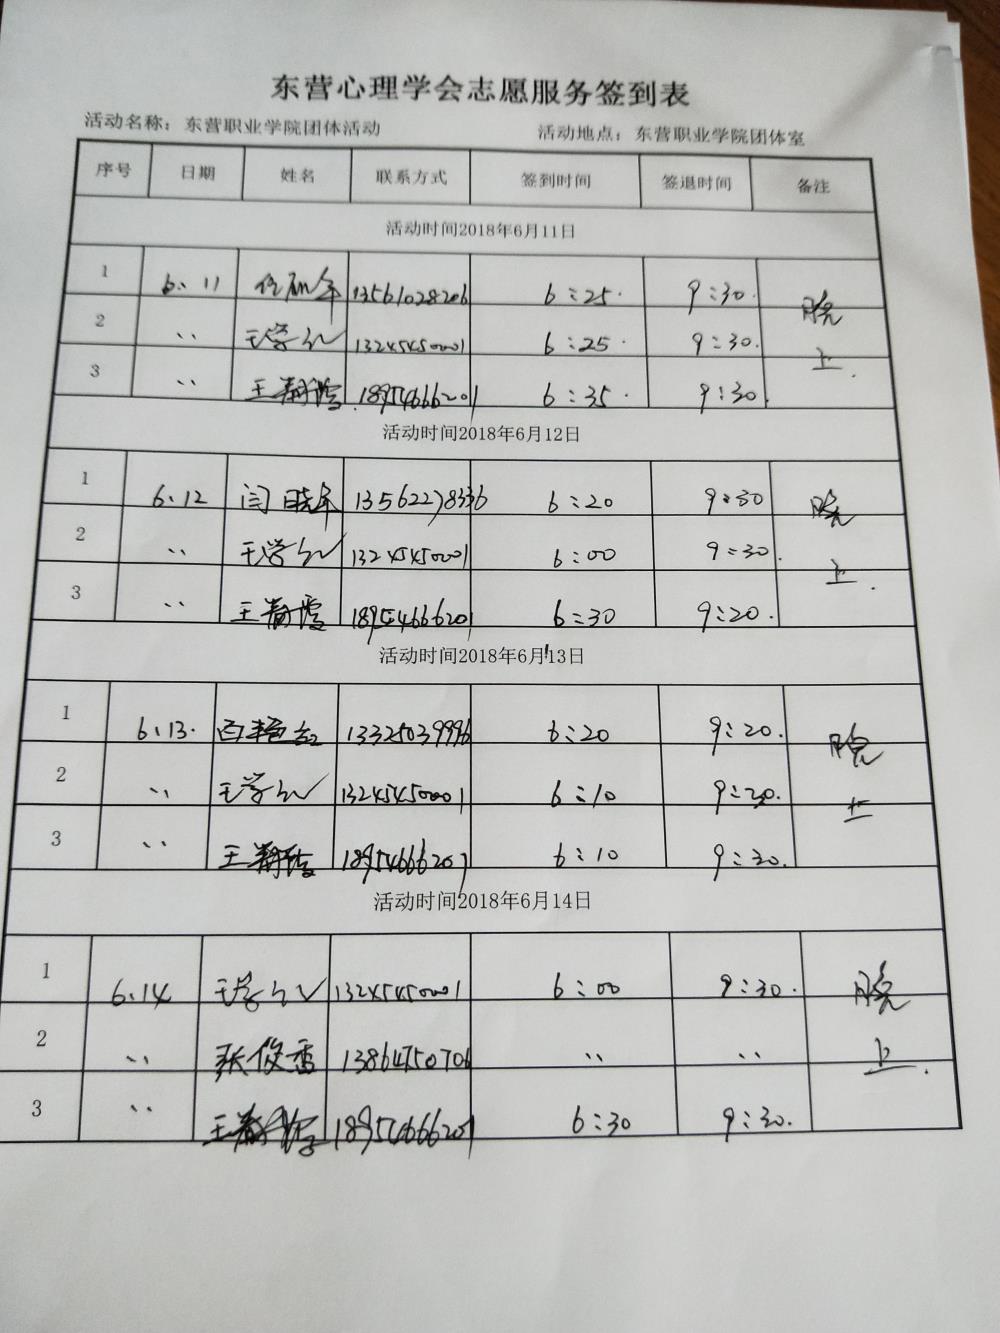 东营心理学会志愿服务签到表
活动名称：东营职业学院团体活动 活动地点：东营职业学院团体室
序号 日期 姓名 联系方式 签到时间 签退时间 备注
活动时间2018年6月11日
1 6、11 13561028206 6:25. 9:30. 晚
2 、、 王学 13245450001 6:25. 9:30. 上.
3 、、 王 18954666201 6:35. 9:30
活动时间2018年6月12日
1 6、12 闫晓军 13562278336 6:20 9:30 晚
2 、、 王学 13245450001 6:00 9:30. 上.
3 、、 王 霞 18954666201 6:30 9:20.
活动时间2018年6月13日
1 6、13. 白艳红 13325039996 6:20 9:20. 晚
2 、、 王学 13245450001 6:10 9:30. 上
3 、、 王 18954666201 6:10 9:30.
活动时间2018年6月14日
1 6.14 王学 13245450001 6:00 9:30. 晚
2 、、 张俊香 13864750706 、、 、、 上.
3 、、 王 18954666201 6:30 9:30.